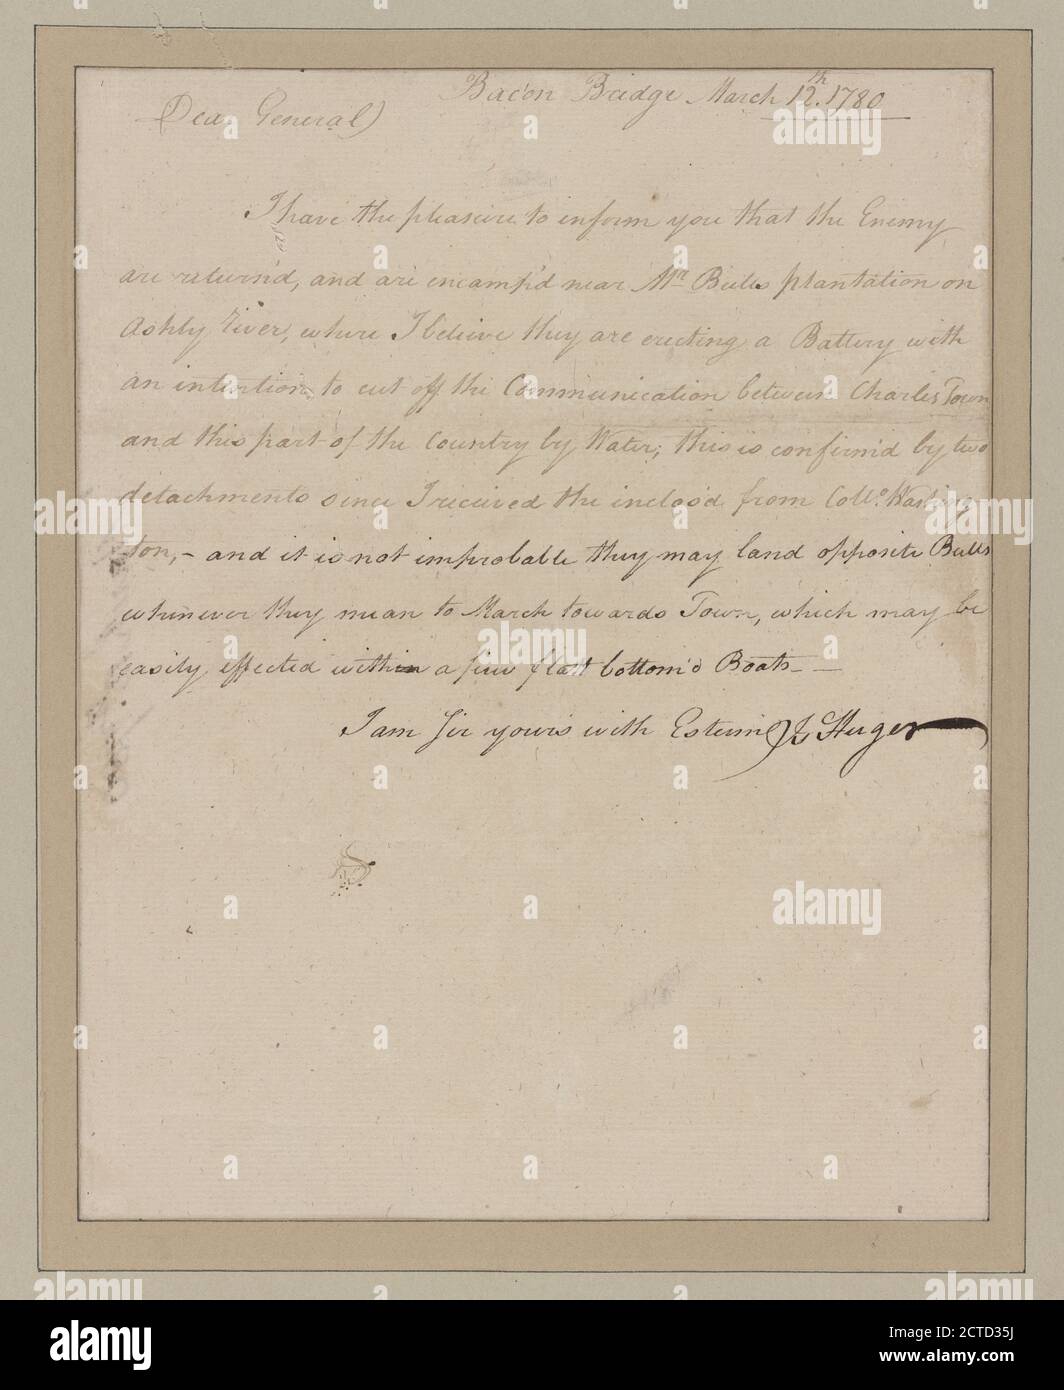 Bacon Bridge March 12.th 1780
Dear General
I have the pleasure to inform you that the Enemy
are return'd, and are encamp'd near Mr. Bulls plantation on
Ashly River, where I believe they are erecting a Battery with
an intention to cut off the Communication between Charles Town
and this part of the Country by Water; this is confirm'd by two
detachments since I received the inclos'd from Collo. Washing
ton,- and it is not improbable they may land opposite Bulls
whenever they mean to March towards Town, which may be
easily effected with in a few flatt bottom'd Boats
I am Sir yours with Esteem
Huger
alamy
Image ID: 2CTD35J
www.alamy.com